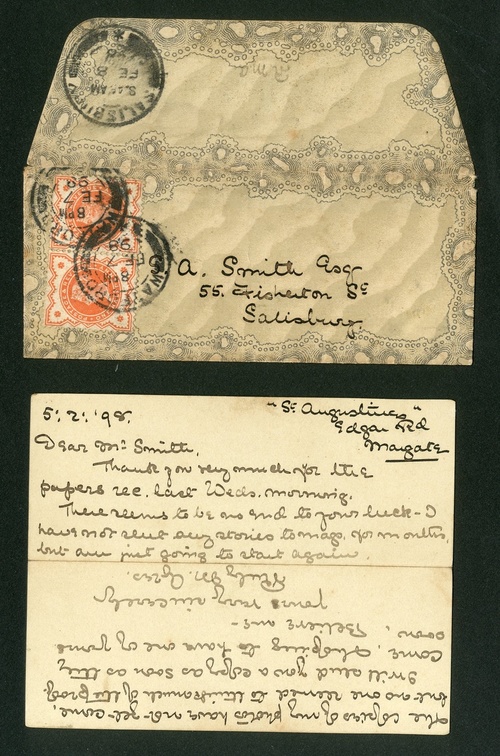 SALISBURY
5.45 AM
FE 8
98
8 PM
FE 7
98
8 PM
FE 7
98
A. Smith Esq
55. Fisherton St
Salisbury.
5. 2. '98.
"St Augustines"
Edgar Rd
Margate
Dear Mr. Smith,
Thank you very much for the
papers rec. last Weds. morning.
There seems to be no end to your luck - I
have not sent any stories to mags. for months,
but am just going to start again.
The copies of my photos have not yet come,
but no one seemed to think much of the proof.
I will send you a copy as soon as they
come, & hoping to have one of yours
soon,
Believe me -
Yours very sincerely